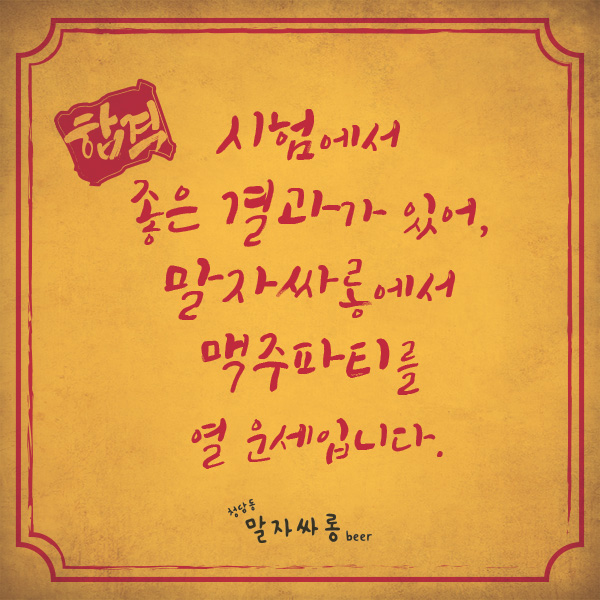 합격
시험에서
좋은 결과가 있어,
말자싸롱에서
맥주파티를
열 운세입니다.
청담동
말자싸롱 beer